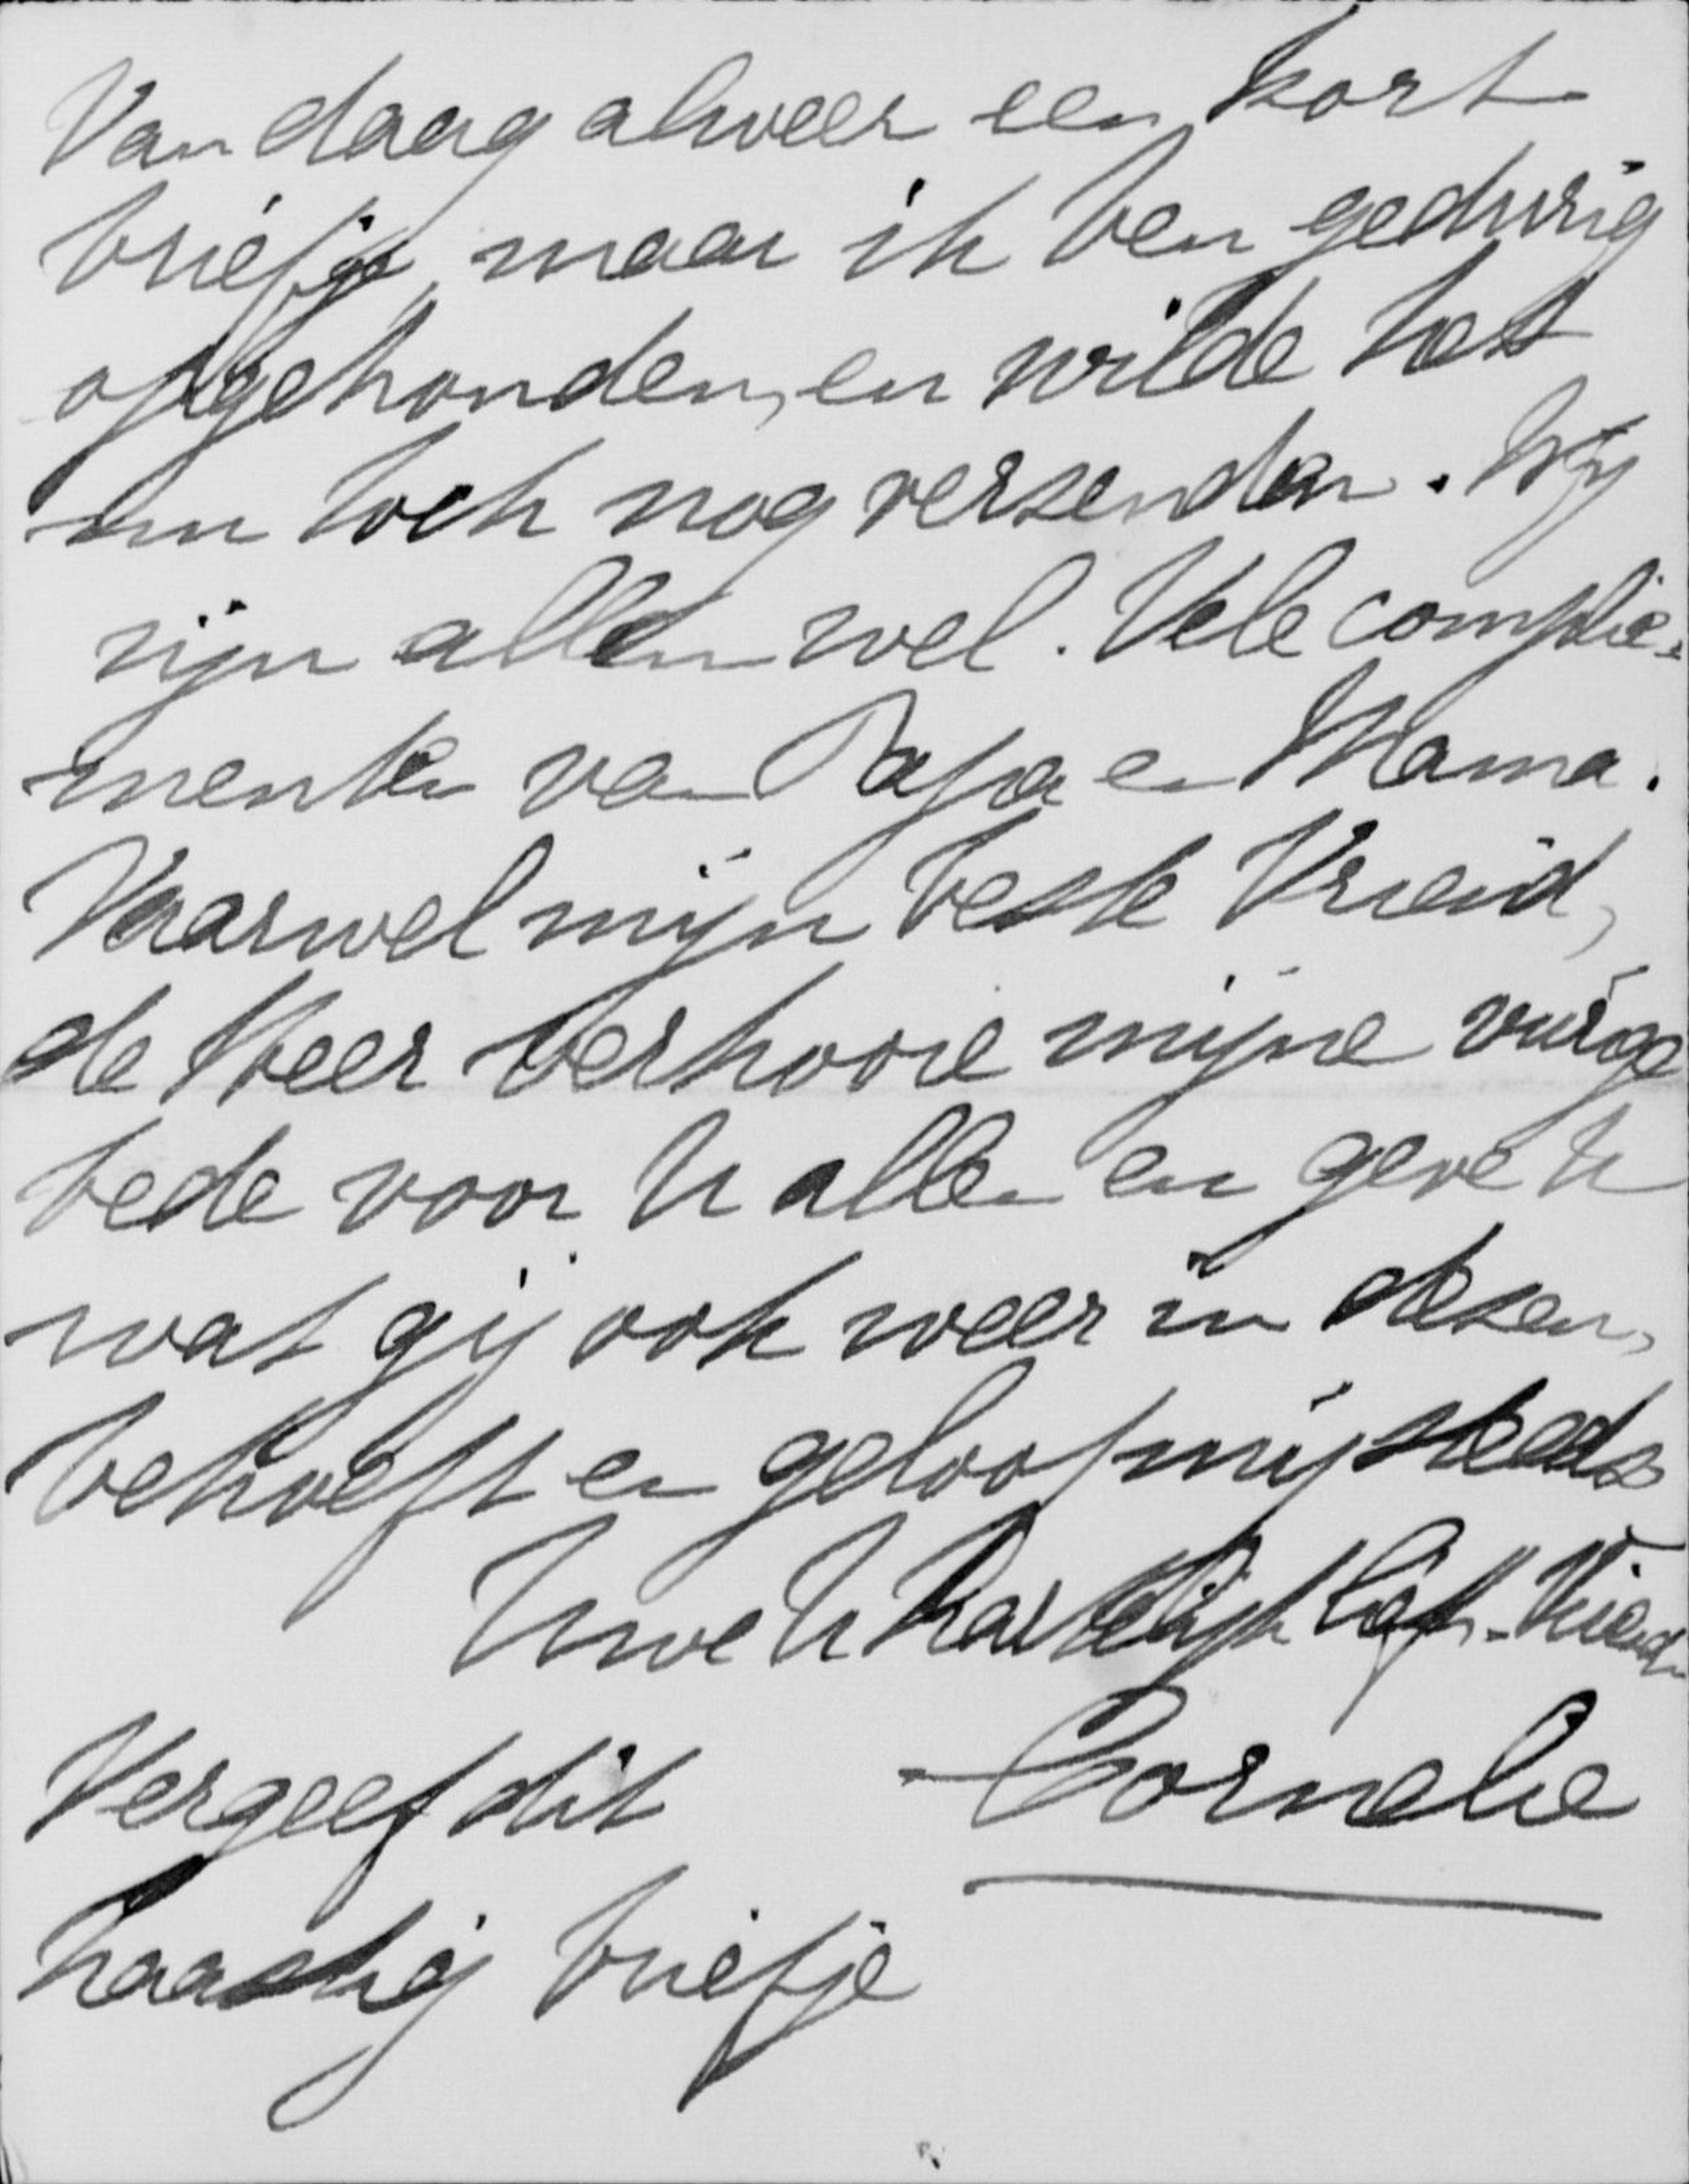 Vandaag alweer een kort
briefje, maar ik ben gedurig
opgehouden, en wilde het
nu toch nog verzenden. Wij
zijn allen wel. Vele complie-
menten van Papa en Mama.
Vaarwel mijn beste Vriend,
de Heer verhoore mijne vurige
bede voor U allen en geve U
wat gij ook weer in dezen,
behoeft en geloof mij steeds
Uwe U hartelijk liefh. Vriend.
Vergeef dit Cornelie
haastig briefje